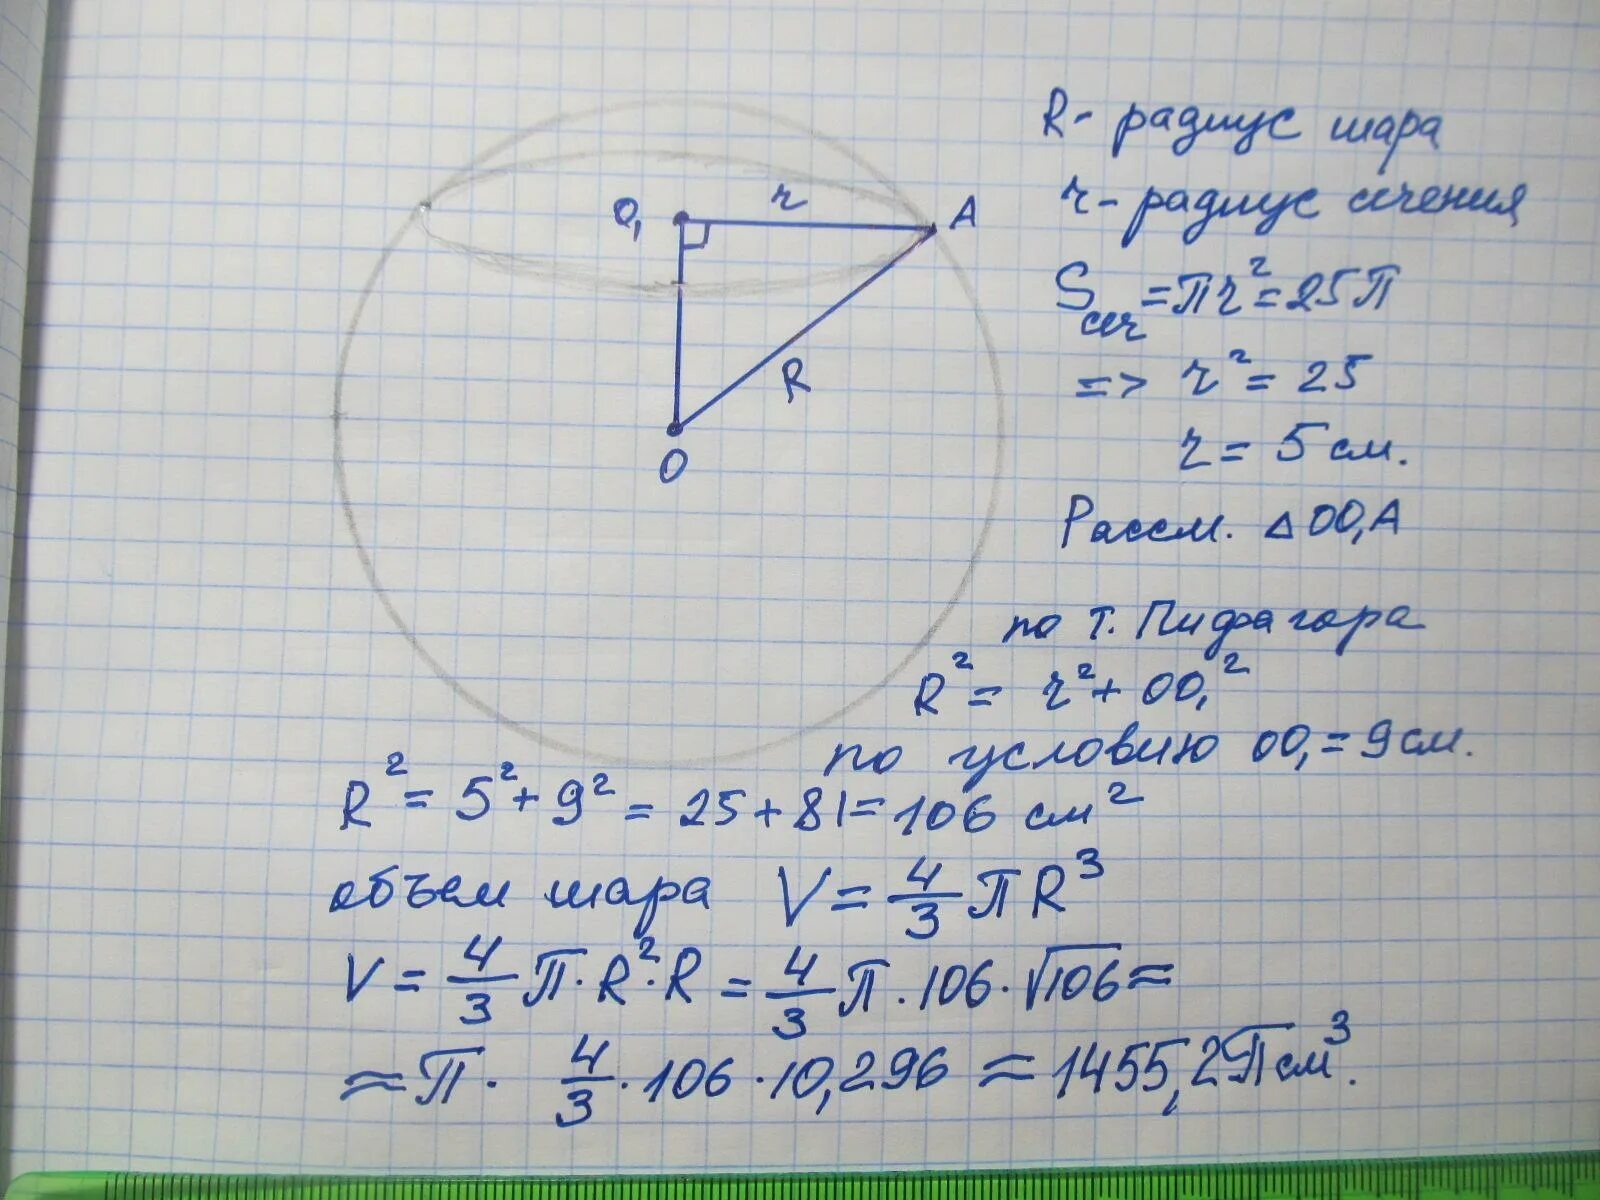 R- радиус шара
r- радиус сечения
Sсеч = πr² = 25π
=> r² = 25
r = 5 см.
Рассм. △OO₁A
по т. Пифагора
R² = r² + OO₁²
по условию OO₁ = 9 см.
R² = 5² + 9² = 25 + 81 = 106 см²
объем шара V = 4/3 πR³
V = 4/3 π · R² · R = 4/3 π · 106 · √106 ≈
≈ π · 4/3 · 106 · 10,296 ≈ 1455,2π см³.
O₁
r
A
R
O